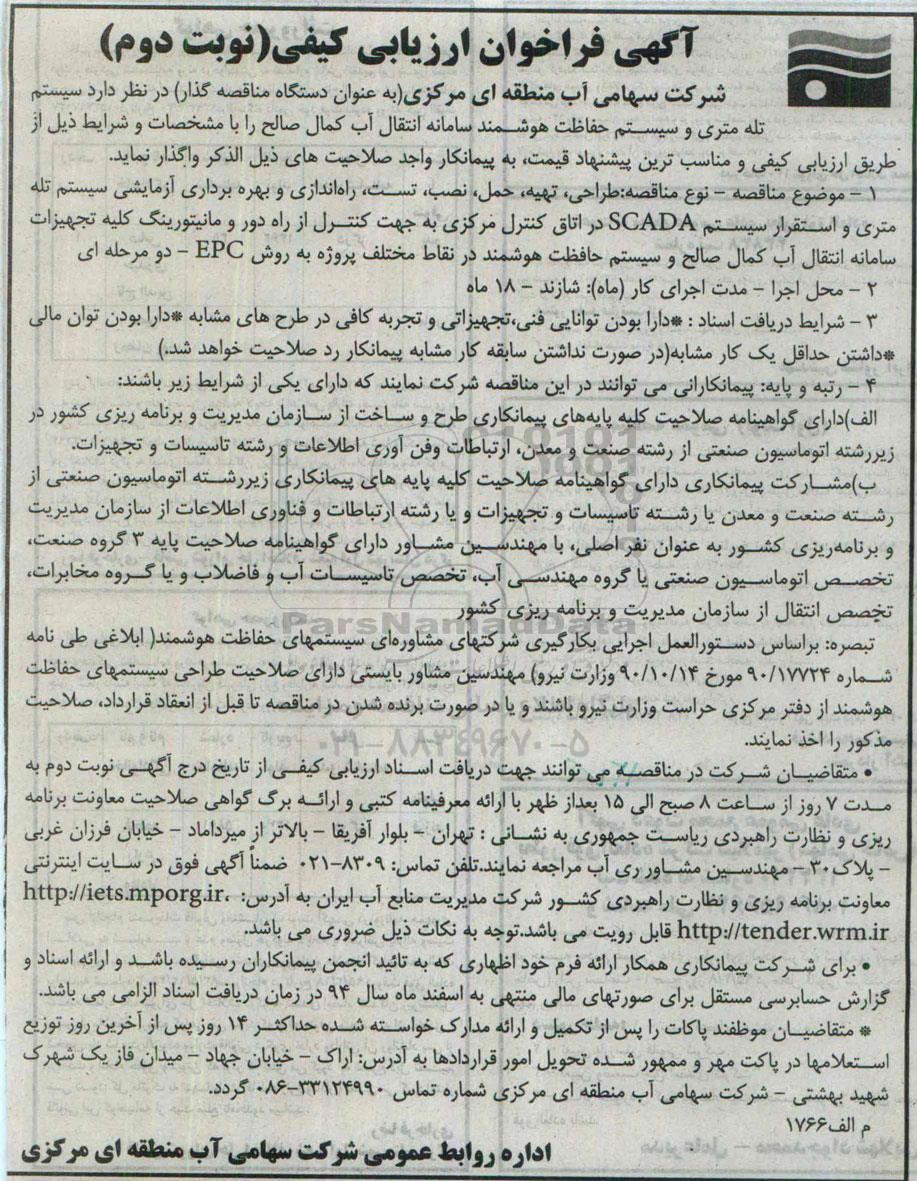 آگهی فراخوان ارزیابی کیفی(نوبت دوم)
شرکت سهامی آب منطقه ای مرکزی(به عنوان دستگاه مناقصه گذار) در نظر دارد سیستم
تله متری و سیستم حفاظت هوشمند سامانه انتقال آب کمال صالح را با مشخصات و شرایط ذیل از
طریق ارزیابی کیفی و مناسب ترین پیشنهاد قیمت، به پیمانکار واجد صلاحیت های ذیل الذکر واگذار نماید.
۱ – موضوع مناقصه – نوع مناقصه:طراحی، تهیه، حمل، نصب، تست، راه‌اندازی و بهره برداری آزمایشی سیستم تله
متری و استقرار سیستم SCADA در اتاق کنترل مرکزی به جهت کنترل از راه دور و مانیتورینگ کلیه تجهیزات
سامانه انتقال آب کمال صالح و سیستم حافظت هوشمند در نقاط مختلف پروژه به روش EPC – دو مرحله ای
۲ – محل اجرا – مدت اجرای کار (ماه): شازند – ۱۸ ماه
۳ – شرایط دریافت اسناد : *دارا بودن توانایی فنی،تجهیزاتی و تجربه کافی در طرح های مشابه *دارا بودن توان مالی
*داشتن حداقل یک کار مشابه(در صورت نداشتن سابقه کار مشابه پیمانکار رد صلاحیت خواهد شد.)
۴ – رتبه و پایه: پیمانکارانی می توانند در این مناقصه شرکت نمایند که دارای یکی از شرایط زیر باشند:
الف)دارای گواهینامه صلاحیت کلیه پایه‌های پیمانکاری طرح و ساخت از سازمان مدیریت و برنامه ریزی کشور در
زیررشته اتوماسیون صنعتی از رشته صنعت و معدن، ارتباطات وفن آوری اطلاعات و رشته تاسیسات و تجهیزات.
ب)مشارکت پیمانکاری دارای گواهینامه صلاحیت کلیه پایه های پیمانکاری زیررشته اتوماسیون صنعتی از
رشته صنعت و معدن یا رشته تاسیسات و تجهیزات و یا رشته ارتباطات و فناوری اطلاعات از سازمان مدیریت
و برنامه‌ریزی کشور به عنوان نفر اصلی، با مهندسین مشاور دارای گواهینامه صلاحیت پایه ۳ گروه صنعت،
تخصص اتوماسیون صنعتی یا گروه مهندسی آب، تخصص تاسیسات آب و فاضلاب و یا گروه مخابرات،
تخصص انتقال از سازمان مدیریت و برنامه ریزی کشور
ParsNamadData
تبصره: براساس دستورالعمل اجرایی بکارگیری شرکتهای مشاوره‌ای سیستمهای حفاظت هوشمند( ابلاغی طی نامه
شماره ۹۰/۱۷۷۲۴ مورخ ۹۰/۱۰/۱۴ وزارت نیرو) مهندسین مشاور بایستی دارای صلاحیت طراحی سیستمهای حفاظت
هوشمند از دفتر مرکزی حراست وزارت نیرو باشند و یا در صورت برنده شدن در مناقصه تا قبل از انعقاد قرارداد، صلاحیت
مذکور را اخذ نمایند.
• متقاضیان شرکت در مناقصه می توانند جهت دریافت اسناد ارزیابی کیفی از تاریخ درج آگهی نوبت دوم به
مدت ۷ روز از ساعت ۸ صبح الی ۱۵ بعداز ظهر با ارائه معرفینامه کتبی و ارائه برگ گواهی صلاحیت معاونت برنامه
ریزی و نظارت راهبردی ریاست جمهوری به نشانی : تهران – بلوار آفریقا – بالاتر از میرداماد – خیابان فرزان غربی
– پلاک۳۰ – مهندسین مشاور ری آب مراجعه نمایند.تلفن تماس: ۸۳۰۹–۰۲۱ ضمناً آگهی فوق در سایت اینترنتی
معاونت برنامه ریزی و نظارت راهبردی کشور شرکت مدیریت منابع آب ایران به آدرس: http://iets.mporg.ir،
http://tender.wrm.ir قابل رویت می باشد.توجه به نکات ذیل ضروری می باشد.
• برای شرکت پیمانکاری همکار ارائه فرم خود اظهاری که به تائید انجمن پیمانکاران رسیده باشد و ارائه اسناد و
گزارش حسابرسی مستقل برای صورتهای مالی منتهی به اسفند ماه سال ۹۴ در زمان دریافت اسناد الزامی می باشد.
* متقاضیان موظفند پاکات را پس از تکمیل و ارائه مدارک خواسته شده حداکثر ۱۴ روز پس از آخرین روز توزیع
استعلامها در پاکت مهر و ممهور شده تحویل امور قراردادها به آدرس: اراک – خیابان جهاد – میدان فاز یک شهرک
شهید بهشتی – شرکت سهامی آب منطقه ای مرکزی شماره تماس ۳۳۱۲۴۹۹۰–۰۸۶ گردد.
م الف۱۷۶۶
اداره روابط عمومی شرکت سهامی آب منطقه ای مرکزی